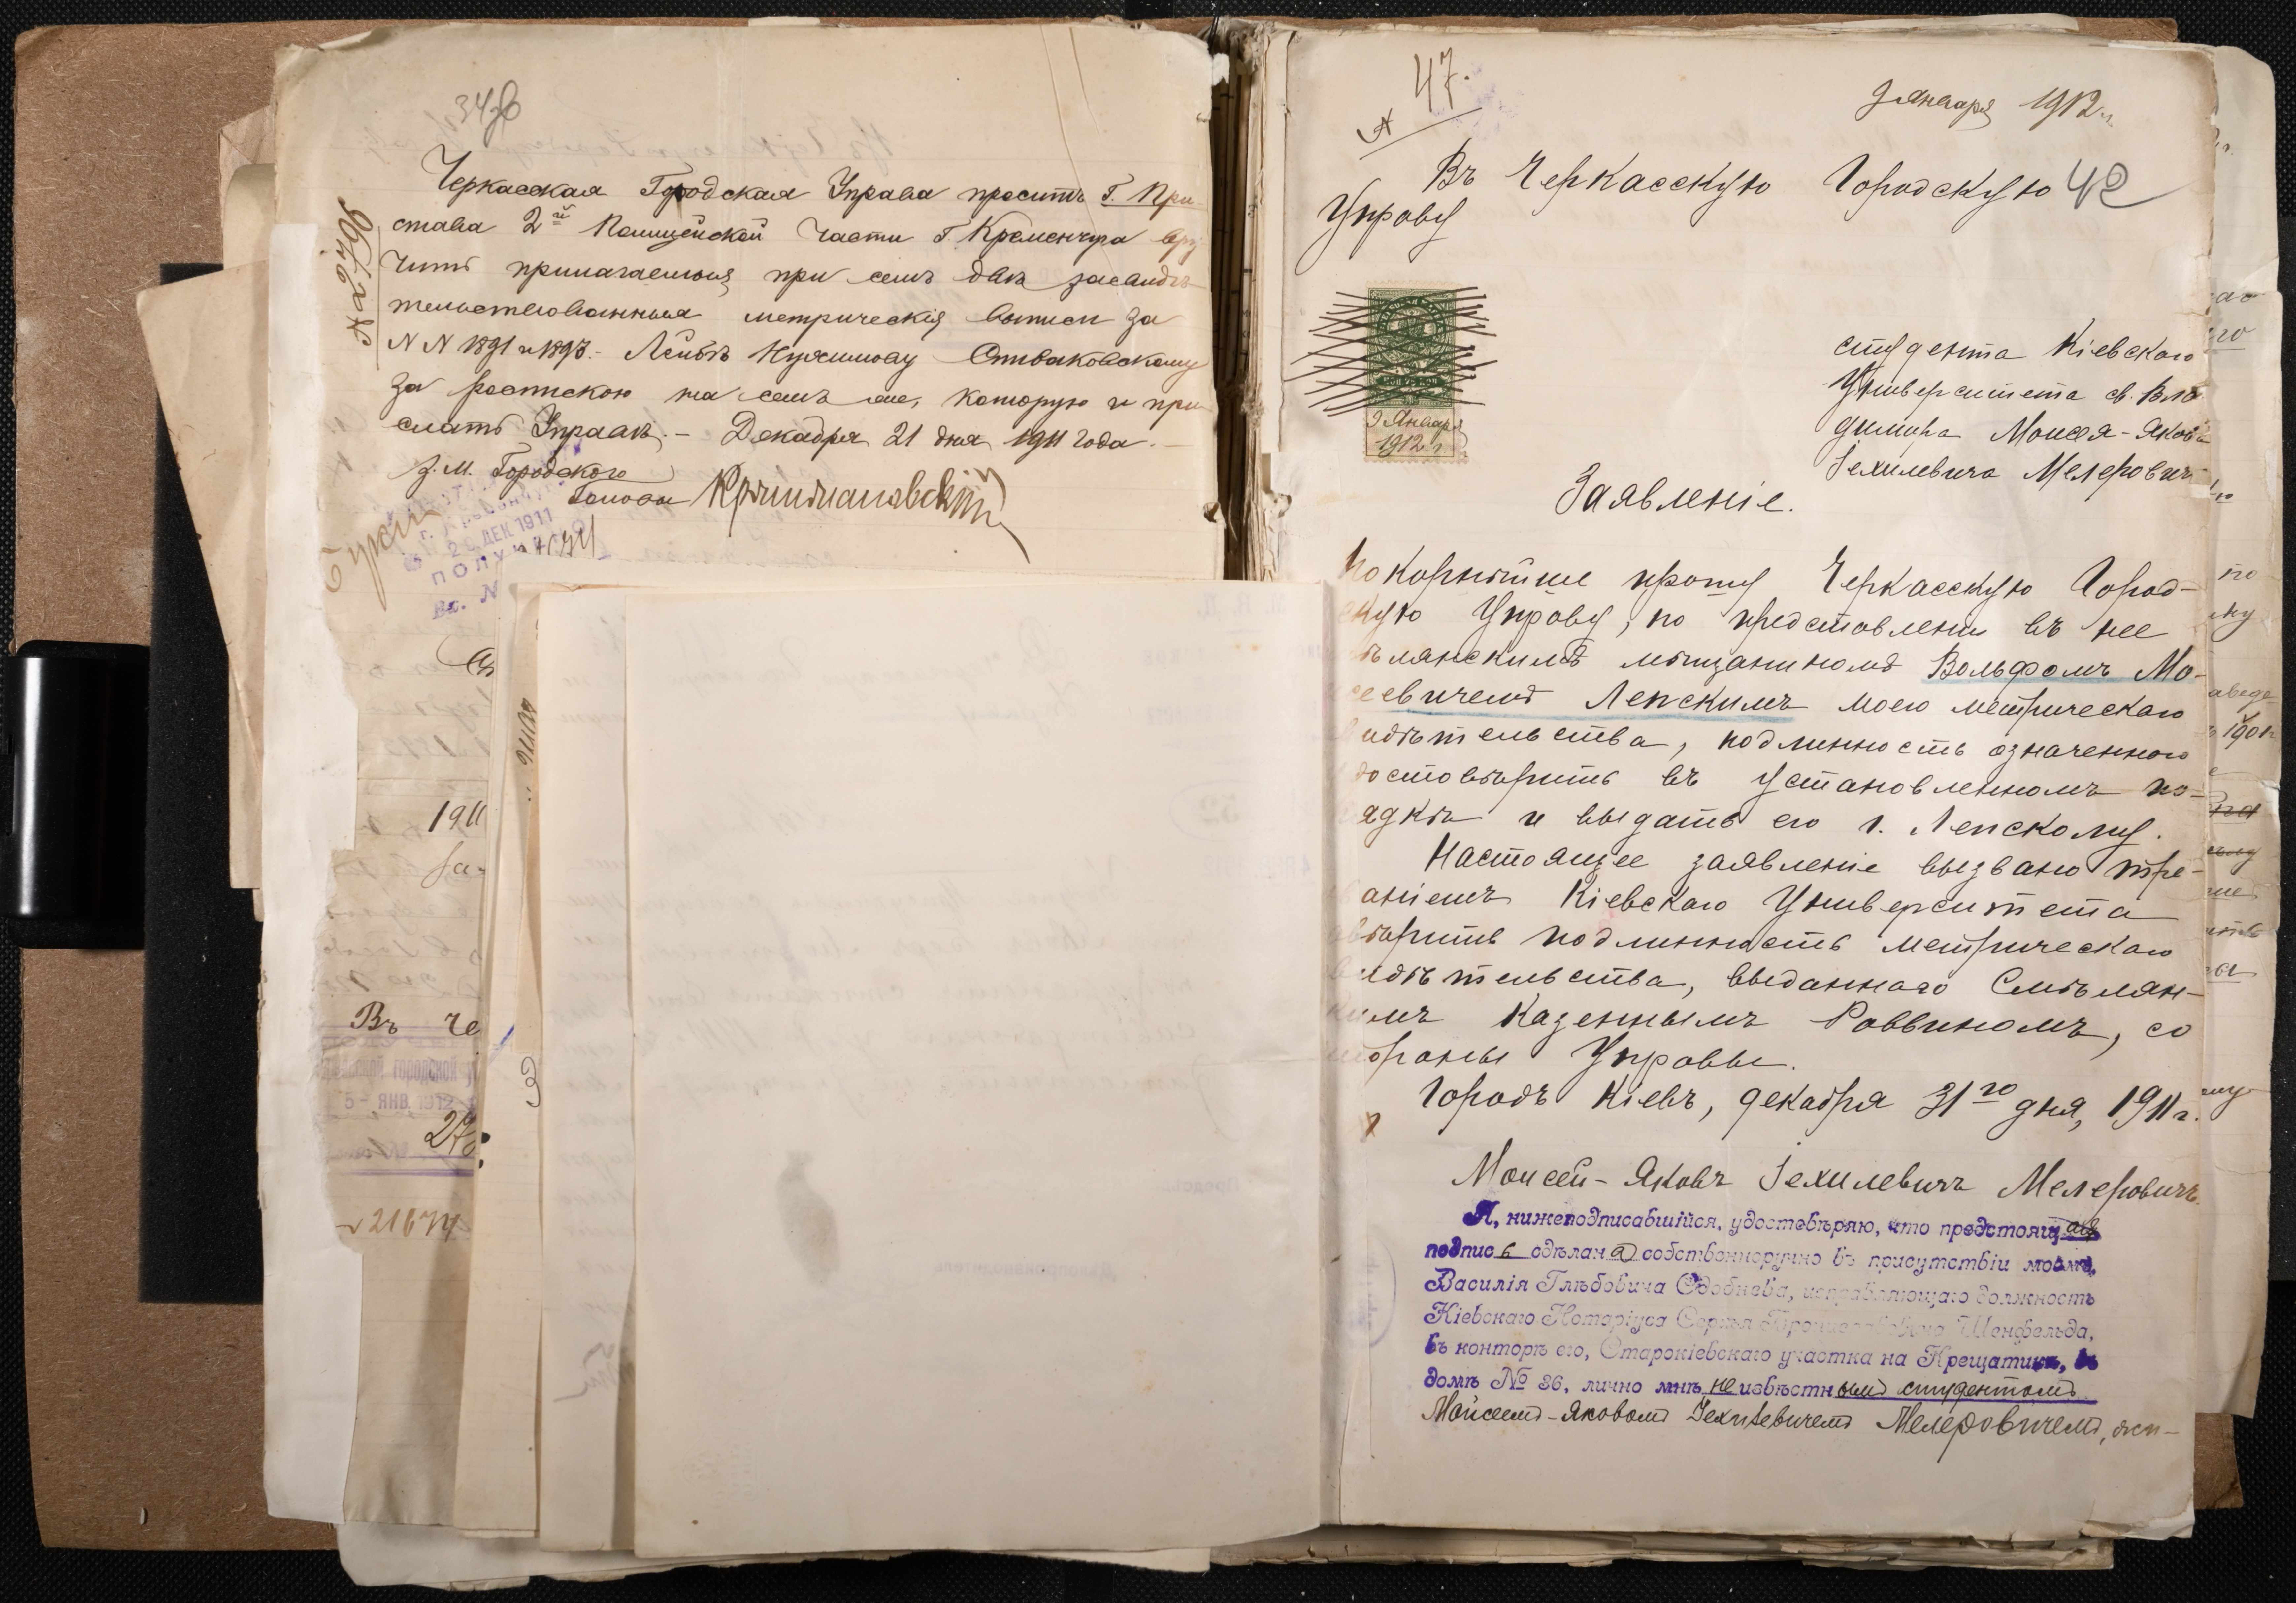 34 об
№ 2796
Черкасская Городская Управа проситъ Г. При-
става 2й Полицейской Части г. Кременчуга вру
чить прилагаемыя при семъ двѣ засвидѣ-
тельствованныя метрическія выписи за
N N 1891 и 1893.- Лейбѣ Отваковскому
за росписскою на семъ же, которую и при-
слать Управѣ.- Декабря 21 дня 1911 года.-
З.М. Городского
Головы
ДЕК 1911
ПОЛУ
Вх. N
1911
за-
Въ Че
городской
5- ЯНВ. 1912
27
21674
47.
9 Января 1912 г.
Въ Черкасскую Городскую 42
Управу
9 Января
1912 г.
студента Кіевскаго
Университета св. Вла
диміра Моисея-Якова
Іехилевича Мелеровича
Заявленіе.
Покорнѣйше прошу Черкасскую Город-
скую Управу, по представлении въ нее
ѣлянскимъ мѣщаниномъ Вольфомъ Мо-
сеевичемъ Лепскимъ моего метрическаго
видѣтельства, подлинность означеннаго
достовѣрить въ установленномъ по-
ядкѣ и выдать его г. Лепскому.
Настоящее заявленіе вызвано тре-
ваніемъ Кіевскаго Университета
овѣрить подлинность метрическаго
видѣтельства, выданнаго Смѣлян-
кимъ Казеннымъ Раввиномъ, со
тороны Управы.
Городъ Кіевъ, декабря 31го дня, 1911 г.
Моисей-Яковъ Іехилевичъ Мелеровичъ.
Я, нижеподписавшійся, удостовѣряю, что предстоящая
подпись сдѣлана собственноручно въ присутствіи моемъ,
Василія Глѣбовича Сдобнева, исправляющаго должность
Кіевскаго Нотаріуса Сергѣя Шенфельда,
въ конторѣ его, Старокіевскаго участка на Крещатикѣ, въ
домѣ № 36, лично мнѣ неизвѣстнымъ студентомъ
Мойсеемъ-Яковомъ Іехилевичемъ Мелеровичемъ, жи-